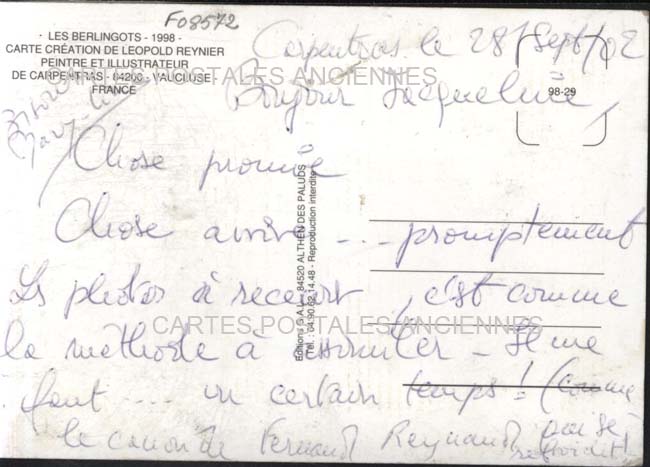 F08572
- LES BERLINGOTS - 1998 -
CARTE CRÉATION DE LEOPOLD REYNIER
PEINTRE ET ILLUSTRATEUR
DE CARPENTRAS - 84200 - VAUCLUSE -
FRANCE
98-29
Carpentras le 28/Sept/02
Bonjour Jacqueline,
Chose promise
Chose arrive .... promptement
Les photos à , c'est comme
la méthode à assimiler - Il me
faut .... un certain temps ! (comme
le canon de Fernand Reynaud qui se
refroidit !
Editions G.A.L. - 84520 ALTHEN DES PALUDS
Tél. : 04.90.62.14.48 - Reproduction interdite
CARTES POSTALES ANCIENNES
CARTES POSTALES ANCIENNES